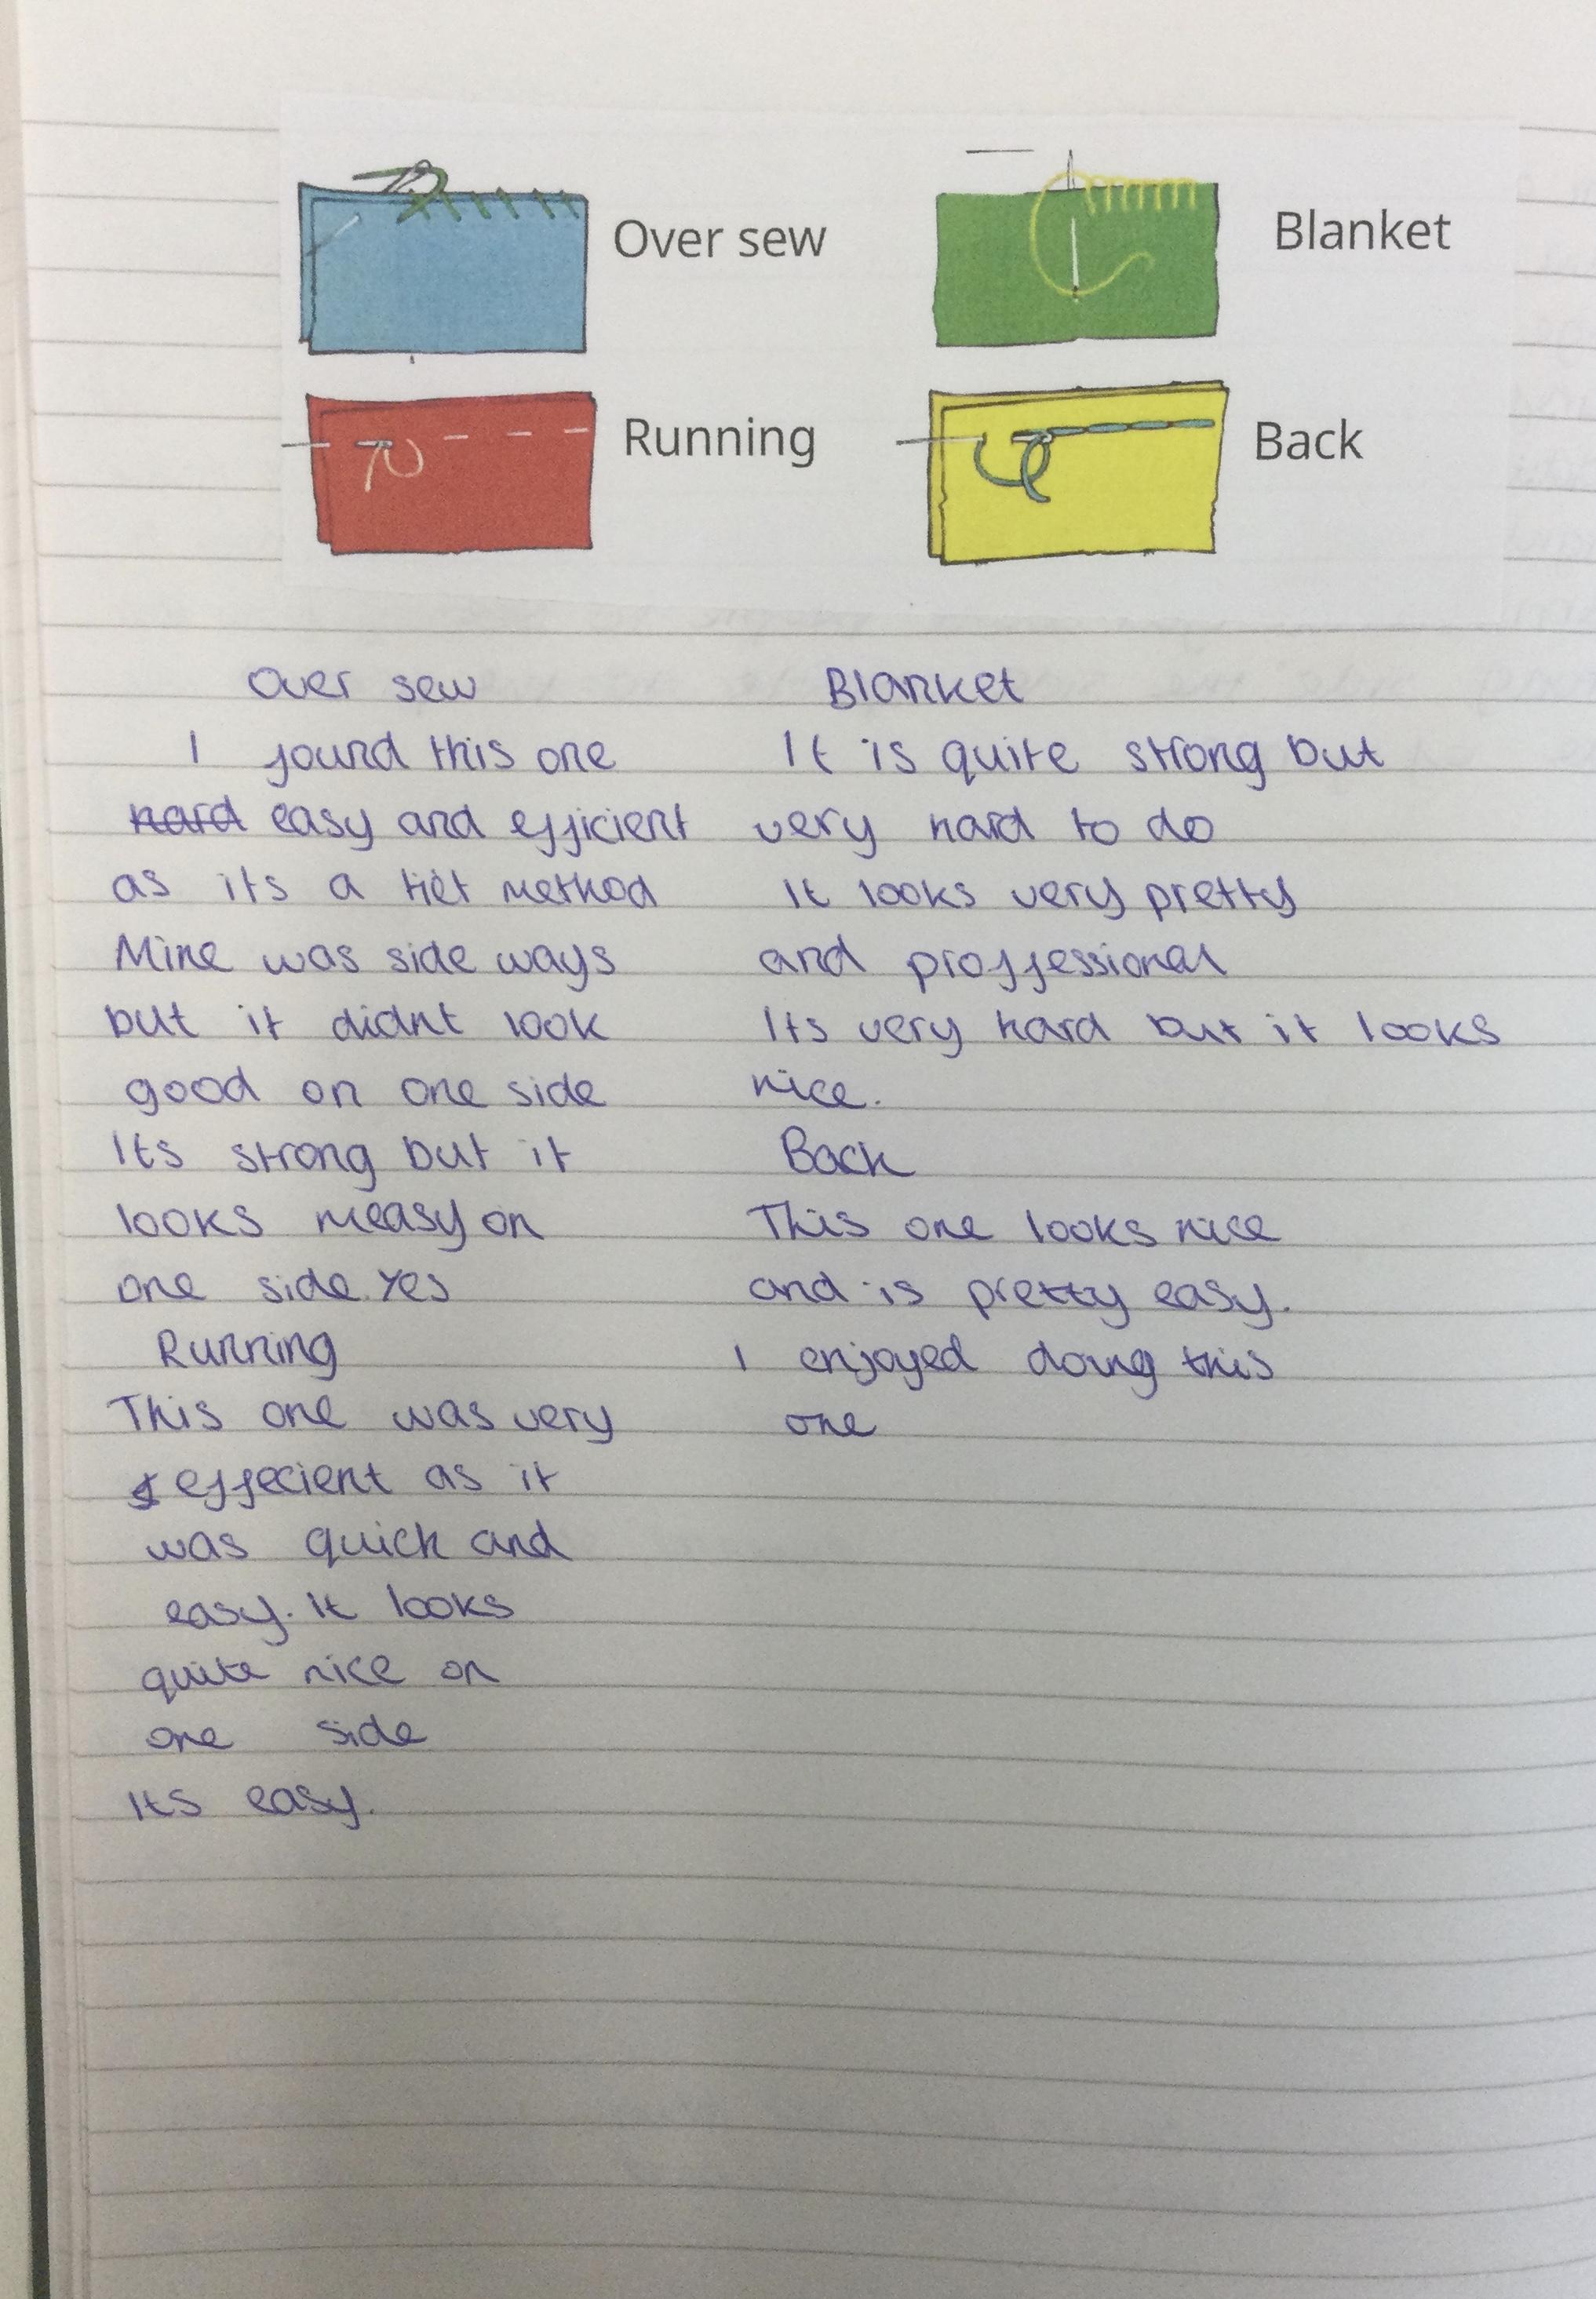 Over sew
Blanket
Running
Back
Over sew
I found this one
hard easy and efficient
as its a method
Mine was side ways
but it didnt look
good on one side
Its strong but it
looks measy on
one side. Yes
Running
This one was very
effecient as it
was quick and
easy. It looks
quite nice on
one side
Its easy.
Blanket
It is quite strong but
very hard to do
It looks very pretty
and proffessional
Its very hard but it looks
nice.
Back
This one looks nice
and is pretty easy.
I enjoyed doing this
one